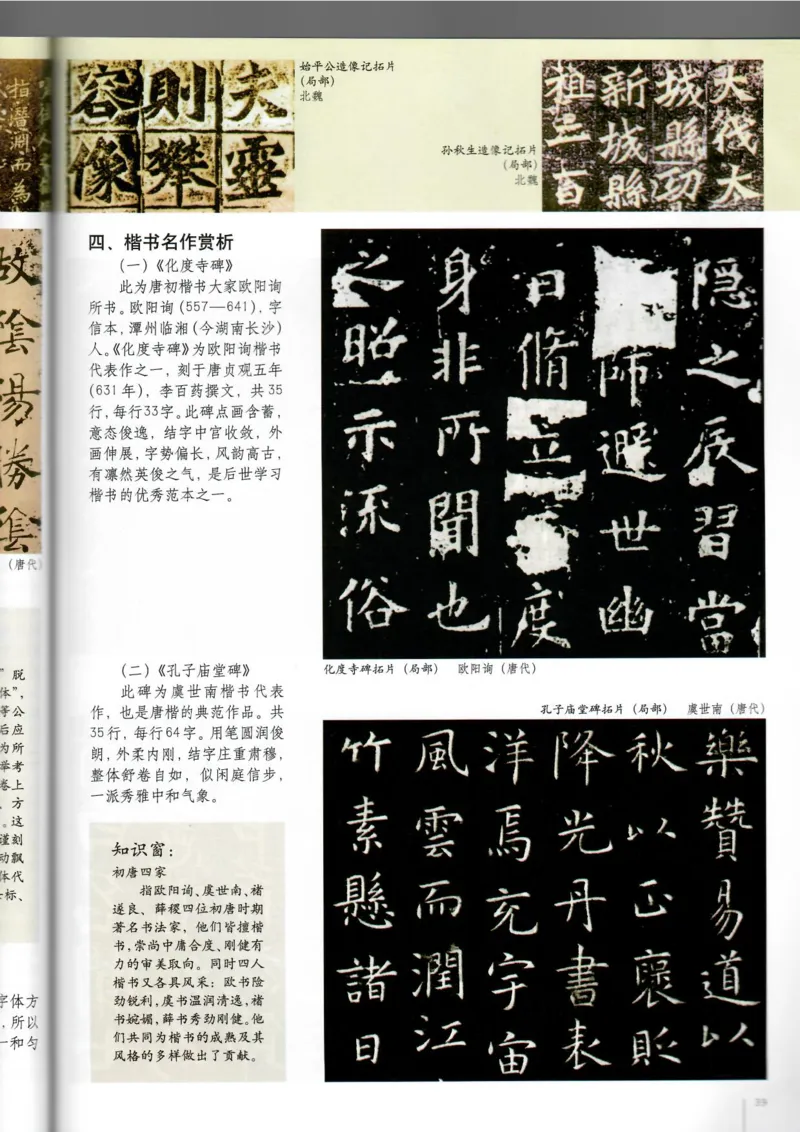 夫靈
則攀
容像
始平公造像记拓片
(局部)
北魏
孙秋生造像记拓片
(局部)
北魏
大伐大
新城縣
祖三百
故
陰
陽
勝
陰
(唐代)
四、楷书名作赏析
(一)《化度寺碑》
此为唐初楷书大家欧阳询
所书。欧阳询(557—641),字
信本,潭州临湘(今湖南长沙)
人。《化度寺碑》为欧阳询楷书
代表作之一,刻于唐贞观五年
(631年),李百药撰文,共35
行,每行33字。此碑点画含蓄,
意态俊逸,结字中宫收敛,外
画伸展,字势偏长,风韵高古,
有凛然英俊之气,是后世学习
楷书的优秀范本之一。
隐之辰習當
師遯世幽
日脩立度
身非所聞也
之昭示流俗
化度寺碑拓片(局部) 欧阳询(唐代)
(二)《孔子庙堂碑》
此碑为虞世南楷书代表
作,也是唐楷的典范作品。共
35行,每行64字。用笔圆润俊
朗,外柔内刚,结字庄重肃穆,
整体舒卷自如,似闲庭信步,
一派秀雅中和气象。
孔子庙堂碑拓片(局部) 虞世南(唐代)
樂贊易道以
秋以正褒貶
降光丹書表
洋焉充宇宙
風雲而潤江
竹素懸諸日
知识窗:
初唐四家
指欧阳询、虞世南、褚
遂良、薛稷四位初唐时期
著名书法家,他们皆擅楷
书,崇尚中庸合度、刚健有
力的审美取向。同时四人
楷书又各具风采:欧书险
劲锐利,虞书温润清逸,褚
书婉媚,薛书秀劲刚健。他
们共同为楷书的成熟及其
风格的多样做出了贡献。
” 脱
体”,
等公
后应
为所
举考
卷上
、方
。这
谨刻
动飘
体代
标、
字体方
,所以
一和匀
39